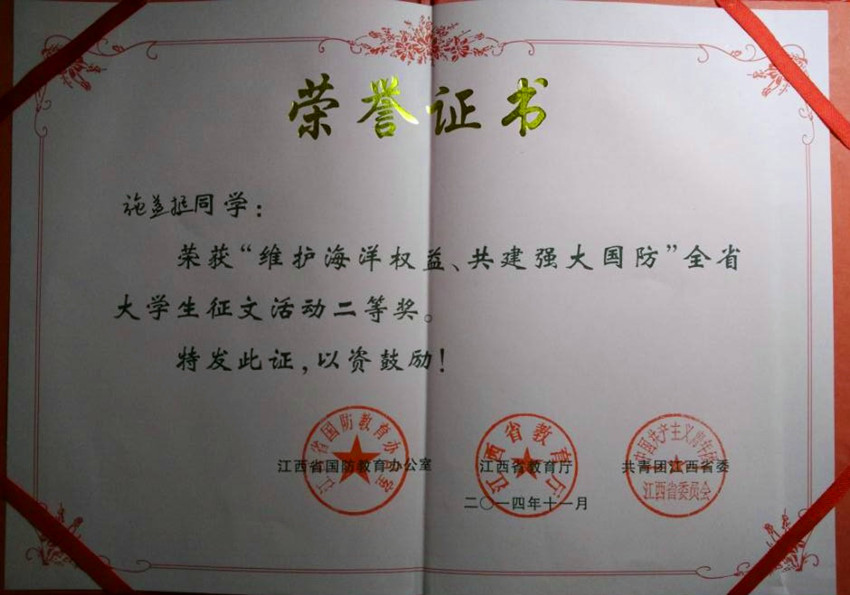 荣誉证书
施益挺同学：
荣获“维护海洋权益、共建强大国防”全省
大学生征文活动二等奖。
特发此证，以资鼓励！
江西省国防教育办公室
江西省国防教育办公室
江西省教育厅
江西省教育厅
共青团江西省委
中国共产主义青年团
江西省委员会
二〇一四年十一月